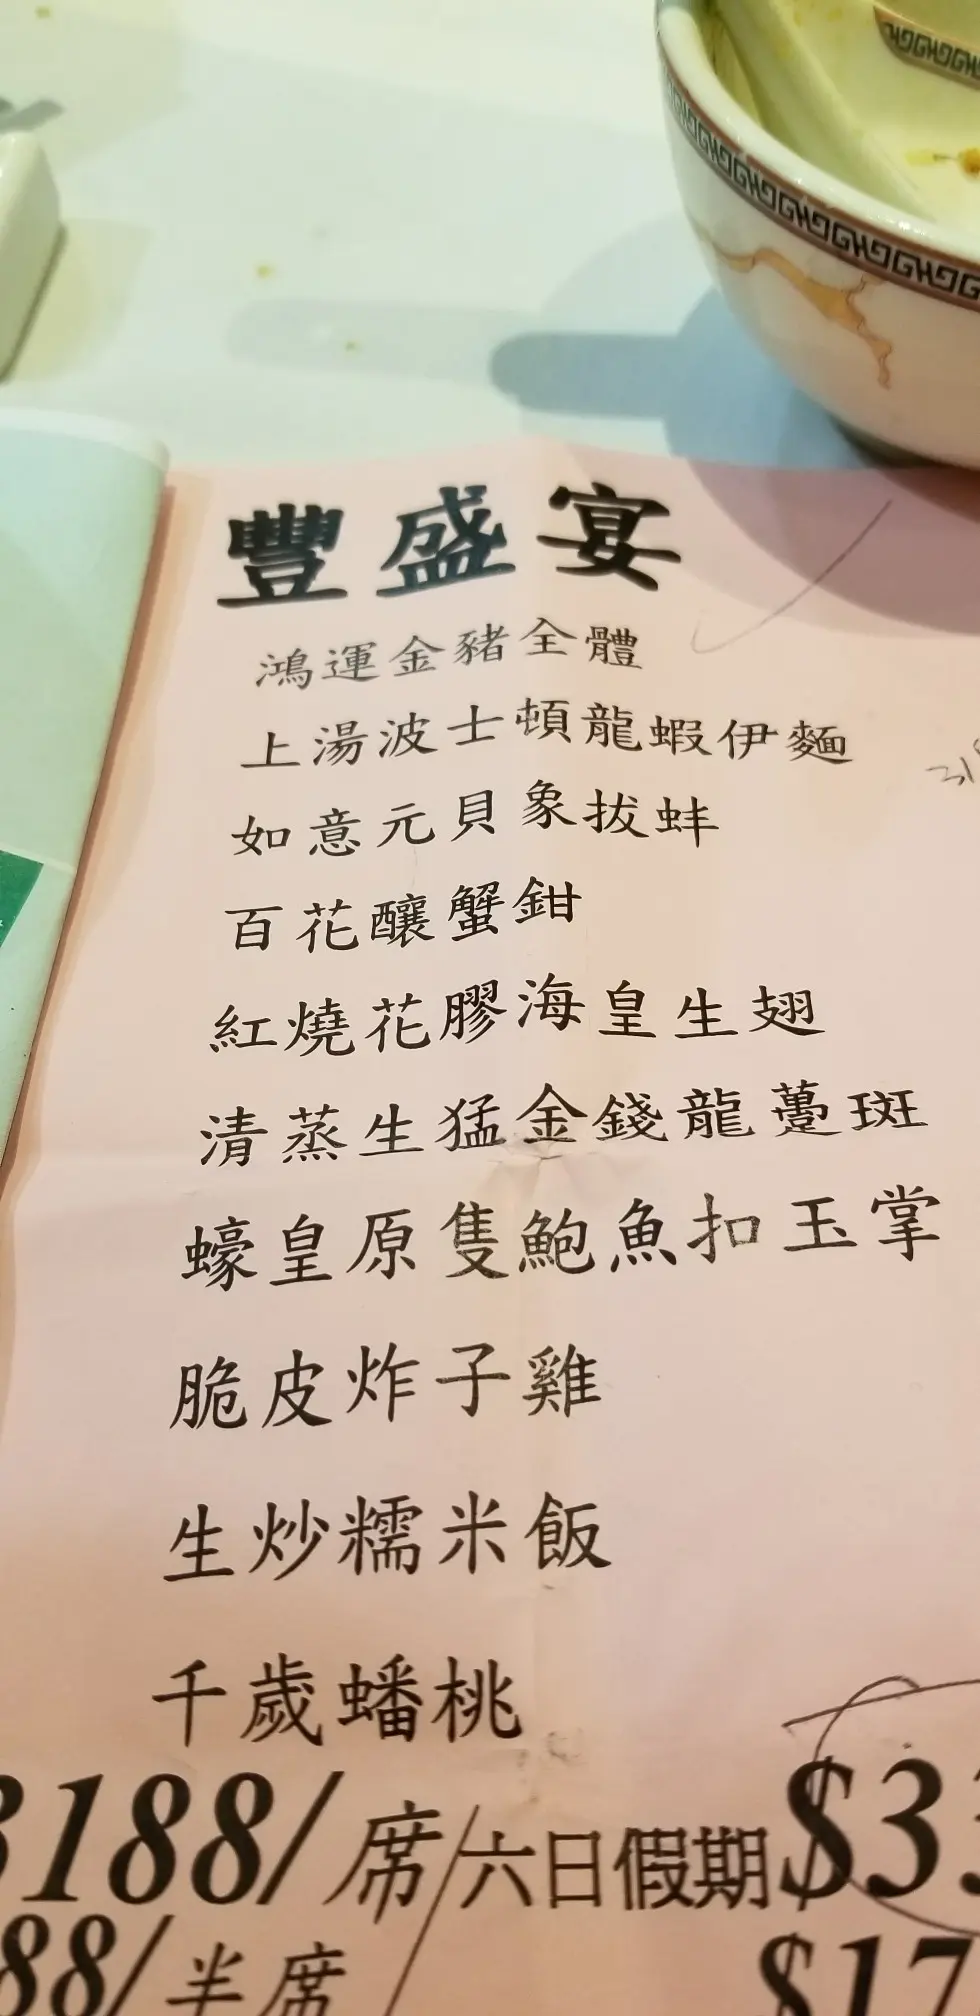 豐盛宴
鴻運金豬全體
上湯波士頓龍蝦伊麵
如意元貝象拔蚌
百花釀蟹鉗
紅燒花膠海皇生翅
清蒸生猛金錢龍躉斑
蠔皇原隻鮑魚扣玉掌
脆皮炸子雞
生炒糯米飯
千歲蟠桃
3188/席/六日假期$33
88/半席 $17